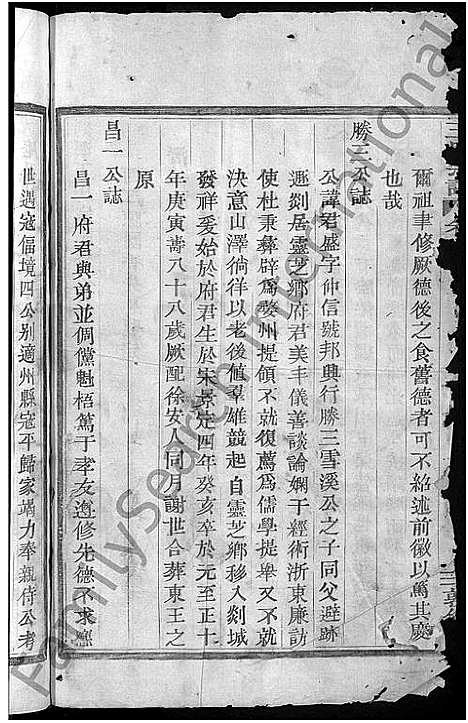 爾祖聿修厥德後之食舊德者可不紹述前徽以篤其慶
也哉
勝三公誌
公諱君盛字仲信號邦興行勝三雪溪公之子同父避跡
遯剡居靈芝鄉府君美丰儀善談論嫻于經術浙東廉訪
使杜秉彝辟爲婺州提領不就復薦爲儒學提舉又不就
決意山澤徜徉以老後値羣雄競起自靈芝鄉移入剡城
發祥爰始於府君生於宋景定四年癸亥卒於元至正十
年庚寅壽八十八歲厥配徐安人同月謝世合葬東王之
原
昌一公誌
昌一府君與弟並倜儻魁梧篤于孝友遵修先德不求
世遇寇偪境四公别適州縣寇平歸家竭力奉親侍公考
FamilySearch International